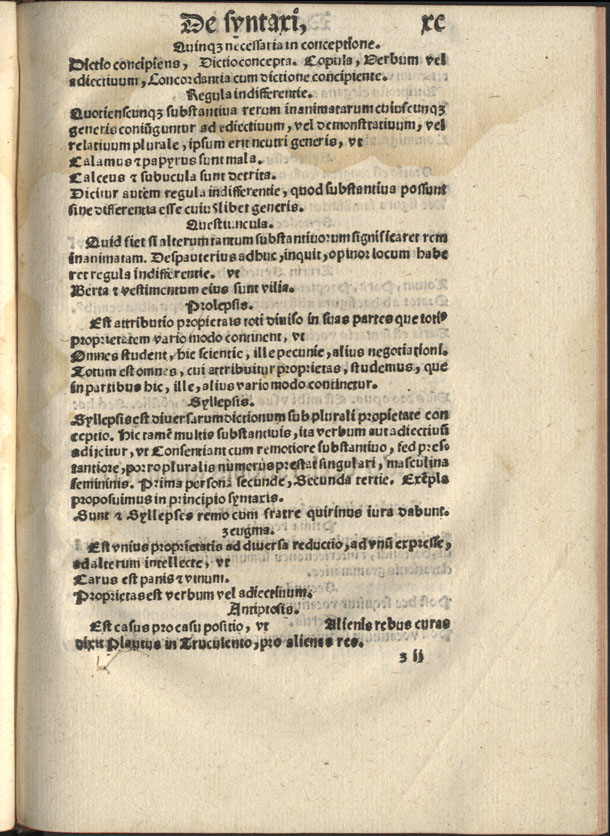 De syntaxi, xc
Quinqꝫ necessaria in conceptione.
Dictio concipiens, Dictio concepta. Copula, Verbum vel
adiectiuum, Concordantia cum dictione concipiente.
Regula indifferentie.
Quotienscunqꝫ substantiua rerum inanimatarum cuiuscunqꝫ
generis coniūguntur ad adiectiuum, vel demonstratiuum, vel
relatiuum plurale, ipsum erit neutri generis, vt
Calamus ⁊ papyrus sunt mala.
Calceus ⁊ subucula sunt detrita.
Dicitur autem regula indifferentie, quod substantiua possunt
sine differentia esse cuiuslibet generis.
Questiuncula.
Quid fiet si alterum tantum substantiuorum significaret rem
inanimatam. Despauterius adhuc, inquit, opinor locum habe
ret regula indifferentie. vt
Berta ⁊ vestimentum eius sunt vilia.
Prolepsis.
Est attributio propietatis toti diuiso in suas partes que totiꝰ
proprietatem vario modo continent, vt
Omnes student, hic scientie, ille pecunie, alius negotiationi.
Totum est omnes, cui attribuitur proprietas, studemus, que
in partibus hic, ille, alius vario modo continetur.
Syllepsis.
Syllepsis est diuersarum dictionum sub plurali propietate con
ceptio. Hic tamē multis substantiuis, ita verbum aut adiectiuū
adijcitur, vt Consentiant cum remotiore substantiuo, sed pres-
tantiore, porro pluralis numerus prestat singulari, masculina
femininis. Prima persona secunde, Secunda tertie. Exēpla
proposuimus in principio syntaxis.
Sunt ⁊ Syllepses remo cum fratre quirinus iura dabunt.
zeugma.
Est vnius proprietatis ad diuersa reductio, ad vnū expresse,
ad alterum intellecte, vt
Carus est panis ⁊ vinum.
Proprietas est verbum vel adiectiuum.
Antiptosis.
Est casus pro casu positio, vt Alienis rebus curas
dixit Plautus in Truculento, pro alienes res.
z ij